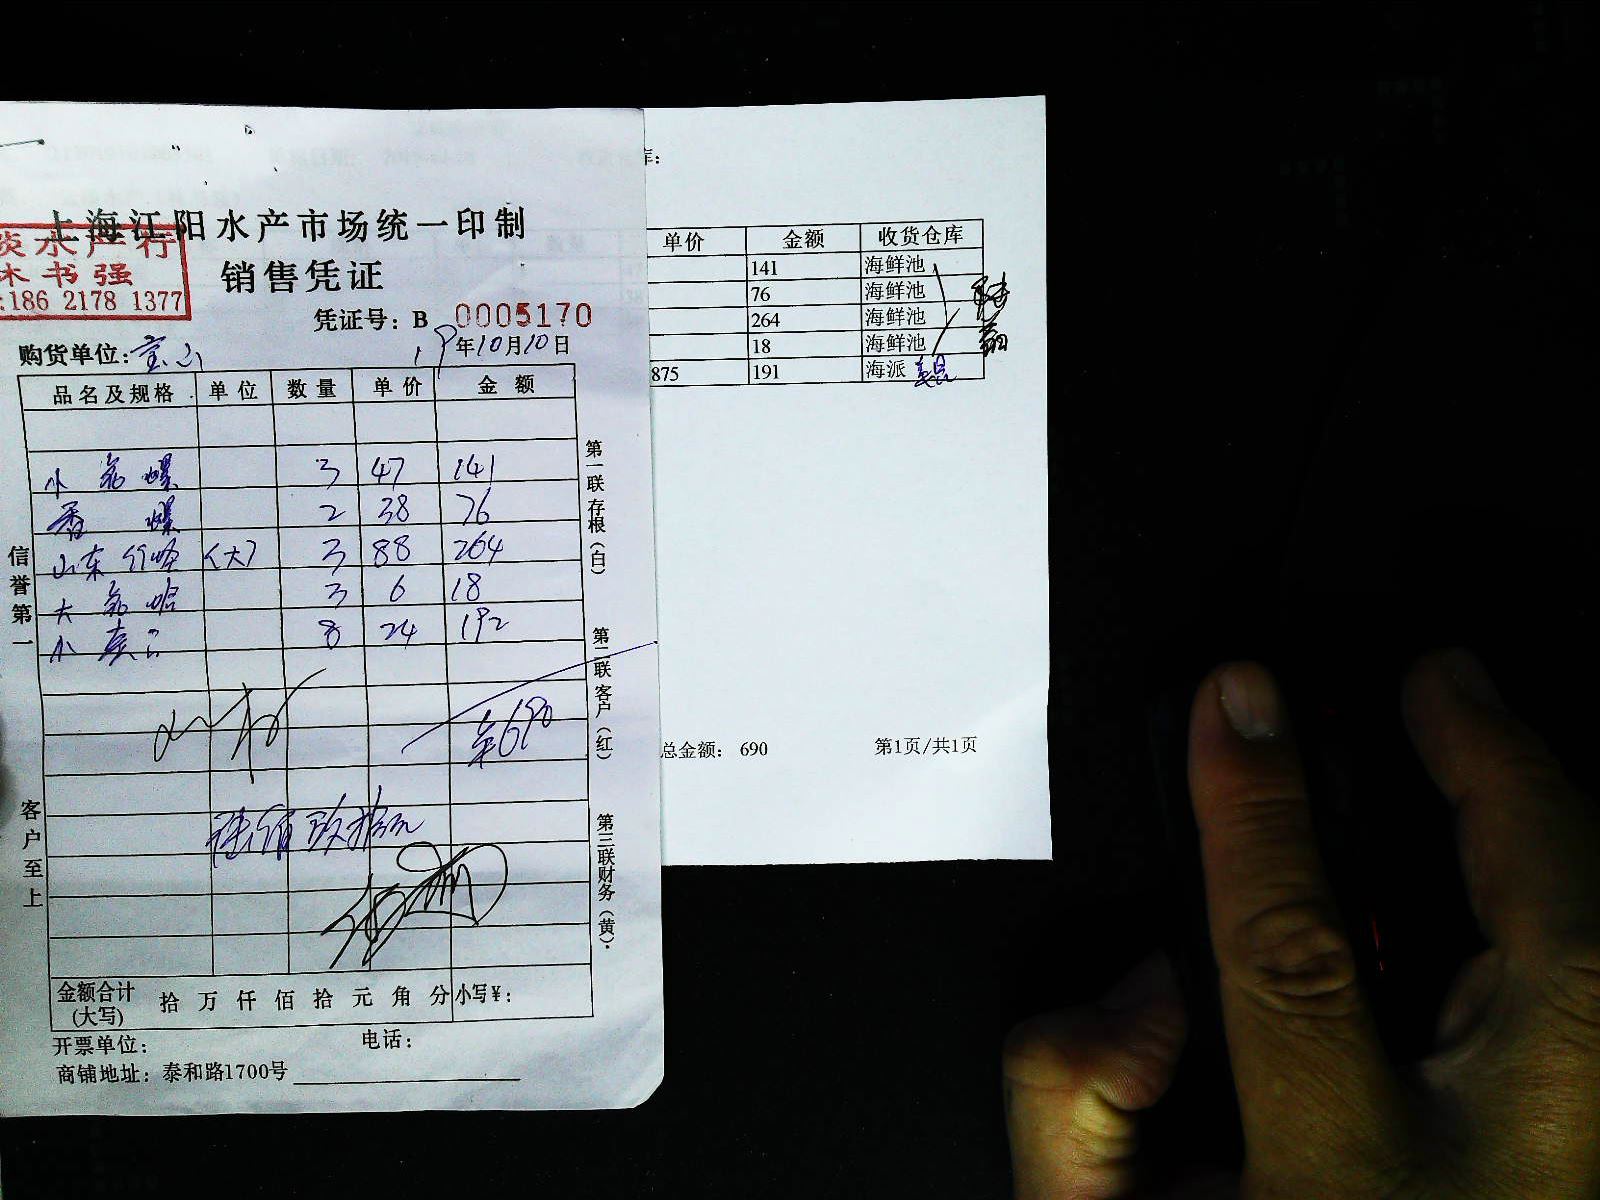 上海江阳水产市场统一印制
淡水产行
林书强
:186 2178 1377
销售凭证
凭证号：B 0005170
购货单位：宝山
19年10月10日
品名及规格 单位 数量 单价 金额
小 螺 3 47 141
香 螺 2 38 76
山东 (大) 3 88 264
大 哈 3 6 18
小 8 24 192
690
陆佰玖拾元
金额合计(大写) 拾 万 仟 佰 拾 元 角 分 小写¥：
开票单位： 电话：
商铺地址：泰和路1700号
信誉第一
客户至上
第一联存根(白)
第二联客户(红)
第三联财务(黄).
库：
单价 金额 收货仓库
141 海鲜池
76 海鲜池
264 海鲜池
18 海鲜池
875 191 海派
总金额： 690 第1页/共1页